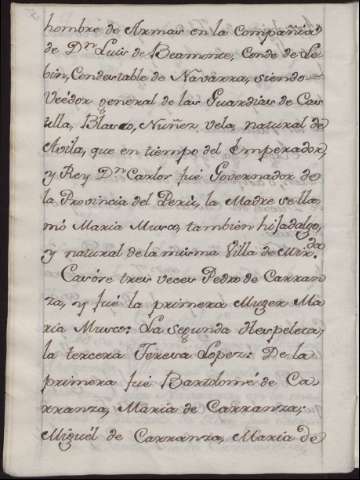 hombre de Armas en la Compañia
de Dⁿ Luis de Beamonte, Conde de Le-
bin, Condestable de Navarra, siendo
Veedor general de las Guardias de Cas-
tilla, Blasco, Nuñez vela, natural de
Avila, que en tiempo del Emperador,
y Rey Dⁿ Carlos fué Governador de
la Provincia del Perú, la Madre se lla-
mó Maria Musco, también hijadalgo,
y natural de la misma Villa de Mirᵈᵃ
Casóse tres veces Pedro de Carran-
za, y fué la primera Muger Ma-
ria Musco: La segunda Hespeleta;
la tercera Teresa Lopez: De la
primera fué Bartolomé de Ca-
rranza, Maria de Carranza;
Miguél de Carranza, Maria de